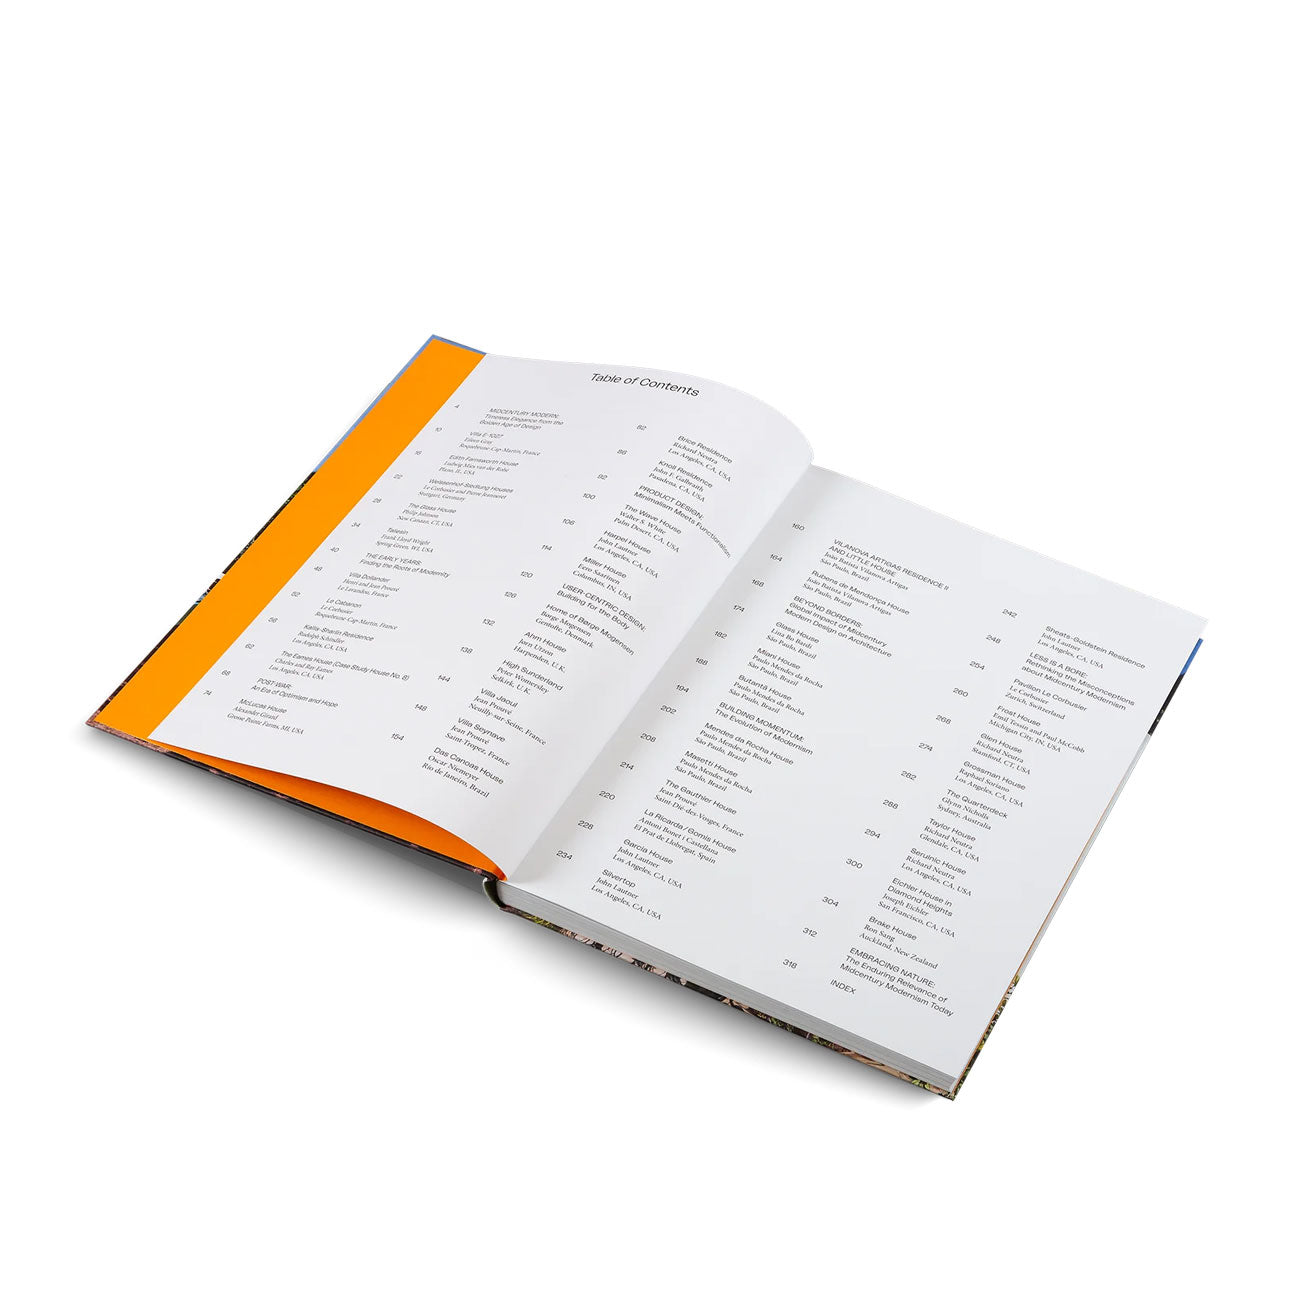 Table of Contents
4
MIDCENTURY MODERN:
Timeless Elegance from the
Golden Age of Design
10
Villa E-1027
Eileen Gray
Roquebrune-Cap-Martin, France
16
Edith Farnsworth House
Ludwig Mies van der Rohe
Plano, IL, USA
22
Weissenhof-Siedlung Houses
Le Corbusier and Pierre Jeanneret
Stuttgart, Germany
28
The Glass House
Philip Johnson
New Canaan, CT, USA
34
Taliesin
Frank Lloyd Wright
Spring Green, WI, USA
40
THE EARLY YEARS:
Finding the Roots of Modernity
48
Villa Dollander
Henri and Jean Prouvé
Le Lavandou, France
52
Le Cabanon
Le Corbusier
Roquebrune-Cap-Martin, France
56
Kallis-Sharlin Residence
Rudolph Schindler
Los Angeles, CA, USA
62
The Eames House (Case Study House No. 8)
Charles and Ray Eames
Los Angeles, CA, USA
68
POST-WAR:
An Era of Optimism and Hope
74
McLucas House
Alexander Girard
Grosse Pointe Farms, MI, USA
82
Brice Residence
Richard Neutra
Los Angeles, CA, USA
86
Knoll Residence
John F. Galbraith
Pasadena, CA, USA
92
PRODUCT DESIGN:
Minimalism Meets Functionalism
100
The Wave House
Walter S. White
Palm Desert, CA, USA
106
Harpel House
John Lautner
Los Angeles, CA, USA
114
Miller House
Eero Saarinen
Columbus, IN, USA
120
USER-CENTRIC DESIGN:
Building for the Body
126
Home of Børge Mogensen
Børge Mogensen
Gentofte, Denmark
132
Ahm House
Jørn Utzon
Harpenden, U.K.
138
High Sunderland
Peter Womersley
Selkirk, U.K.
144
Villa Jaoul
Jean Prouvé
Neuilly-sur-Seine, France
148
Villa Seynave
Jean Prouvé
Saint-Tropez, France
154
Das Canoas House
Oscar Niemeyer
Rio de Janeiro, Brazil
160
VILANOVA ARTIGAS RESIDENCE II
AND LITTLE HOUSE
João Batista Vilanova Artigas
São Paulo, Brazil
164
Rubens de Mendonça House
João Batista Vilanova Artigas
São Paulo, Brazil
168
BEYOND BORDERS:
Global Impact of Midcentury
Modern Design on Architecture
174
Glass House
Lina Bo Bardi
São Paulo, Brazil
182
Miani House
Paulo Mendes da Rocha
São Paulo, Brazil
188
Butantã House
Paulo Mendes da Rocha
São Paulo, Brazil
194
BUILDING MOMENTUM:
The Evolution of Modernism
202
Mendes da Rocha House
Paulo Mendes da Rocha
São Paulo, Brazil
208
Masetti House
Paulo Mendes da Rocha
São Paulo, Brazil
214
The Gauthier House
Jean Prouvé
Saint-Dié-des-Vosges, France
220
La Ricarda / Gomis House
Antoni Bonet i Castellana
El Prat de Llobregat, Spain
228
Garcia House
John Lautner
Los Angeles, CA, USA
234
Silvertop
John Lautner
Los Angeles, CA, USA
242
Sheats-Goldstein Residence
John Lautner
Los Angeles, CA, USA
248
LESS IS A BORE:
Rethinking the Misconceptions
about Midcentury Modernism
254
Pavilion Le Corbusier
Le Corbusier
Zurich, Switzerland
260
Frost House
Emil Tessin and Paul McCobb
Michigan City, IN, USA
268
Glen House
Richard Neutra
Stamford, CT, USA
274
Grossman House
Raphael Soriano
Los Angeles, CA, USA
282
The Quarterdeck
Glynn Nicholls
Sydney, Australia
288
Taylor House
Richard Neutra
Glendale, CA, USA
294
Serulnic House
Richard Neutra
Los Angeles, CA, USA
300
Eichler House in
Diamond Heights
Joseph Eichler
San Francisco, CA, USA
304
Brake House
Ron Sang
Auckland, New Zealand
312
EMBRACING NATURE:
The Enduring Relevance of
Midcentury Modernism Today
318
INDEX